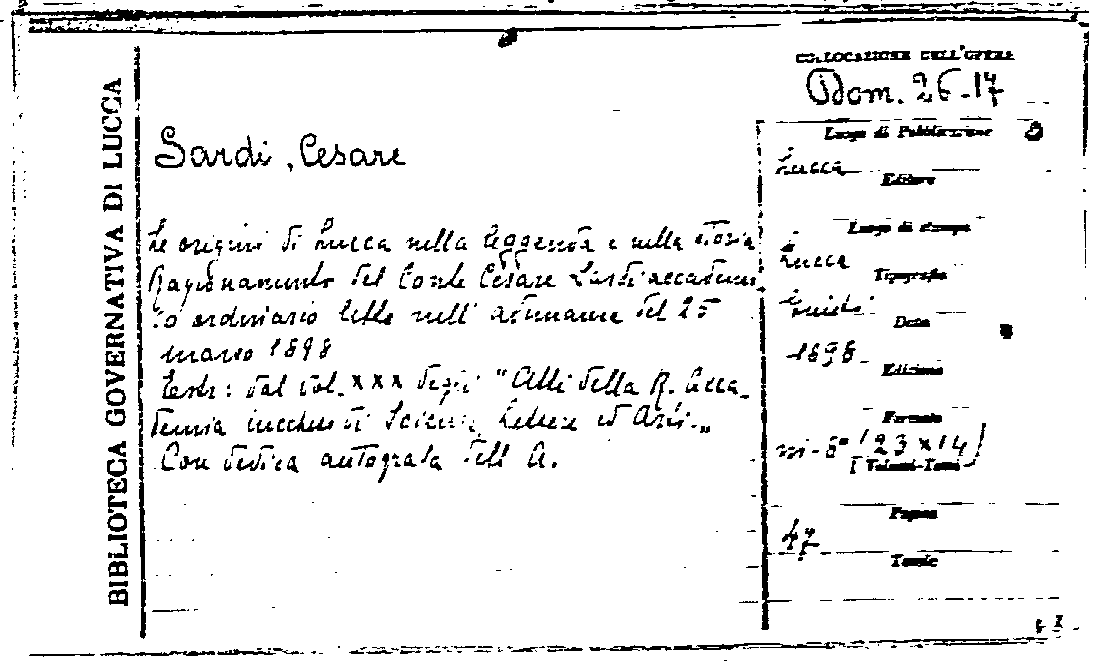 BIBLIOTECA GOVERNATIVA DI LUCCA
COLLOCAZIONE DELL'OPERA
Dom. 26-17
Sardi, Cesare
Le origini di Lucca nella leggenda e nella storia
Ragionamento del Conte Cesare Sardi accademi
co ordinario letto nell' adunanza del 25
marzo 1898
Estr: dal vol. XXX degli "Atti della R. Acca-
demia lucchese di Scienze, Lettere ed Arti.„
Con dedica autografa dell' A.
Luogo di Pubblicazione
Lucca
Editore
Luogo di stampa
Lucca
Tipografia
Guidi
Data
1898
Edizione
Formato
in-8° (23x14)
Volumi-Tomi
Pagine
47
Tavole